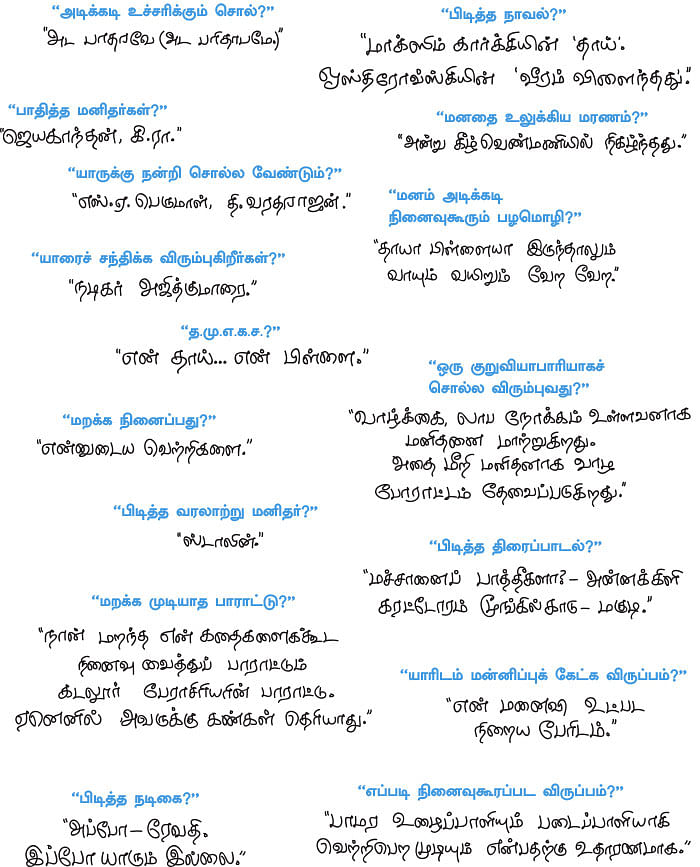 “அடிக்கடி உச்சரிக்கும் சொல்?”
“அட பாதரவே (அட பரிதாபமே.)”
“பாதித்த மனிதர்கள்?”
“ஜெயகாந்தன், கி.ரா.”
“யாருக்கு நன்றி சொல்ல வேண்டும்?”
“எஸ்.ஏ.பெருமாள், தி.வரதராஜன்.”
“யாரைச் சந்திக்க விரும்புகிறீர்கள்?”
“நடிகர் அஜித்குமாரை.”
“த.மு.எ.க.ச.?”
“என் தாய்... என் பிள்ளை.”
“மறக்க நினைப்பது?”
“என்னுடைய வெற்றிகளை.”
“பிடித்த வரலாற்று மனிதர்?”
“ஸ்டாலின்.”
“மறக்க முடியாத பாராட்டு?”
“நான் மறந்த என் கதைகளைக்கூட
நினைவு வைத்துப் பாராட்டும்
கடலூர் பேராசிரியரின் பாராட்டு.
ஏனெனில் அவருக்கு கண்கள் தெரியாது.”
“பிடித்த நடிகை?”
“அப்போ – ரேவதி.
இப்போ யாரும் இல்லை.”
“பிடித்த நாவல்?”
“மாக்ஸிம் கார்க்கியின் ‘தாய்’.
ஓஸ்திரோவ்ஸ்கியின் ‘வீரம் விளைந்தது’.”
“மனதை உலுக்கிய மரணம்?”
“அன்று கீழ்வெண்மணியில் நிகழ்ந்தது.”
“மனம் அடிக்கடி
நினைவுகூரும் பழமொழி?”
“தாயா பிள்ளையா இருந்தாலும்
வாயும் வயிறும் வேற வேற.”
“ஒரு குறுவியாபாரியாகச்
சொல்ல விரும்புவது?”
“வாழ்க்கை, லாப நோக்கம் உள்ளவனாக
மனிதனை மாற்றுகிறது.
அதை மீறி மனிதனாக வாழ
போராட்டம் தேவைப்படுகிறது.”
“பிடித்த திரைப்பாடல்?”
“மச்சானைப் பாத்தீகளா? – அன்னக்கிளி
கரட்டோரம் மூங்கில் காடு – மகுடி.”
“யாரிடம் மன்னிப்புக் கேட்க விருப்பம்?”
“என் மனைவி உட்பட
நிறைய பேரிடம்.”
“எப்படி நினைவுகூரப்பட விருப்பம்?”
“பாமர உழைப்பாளியும் படைப்பாளியாகி
வெற்றிபெற முடியும் என்பதற்கு உதாரணமாக.”